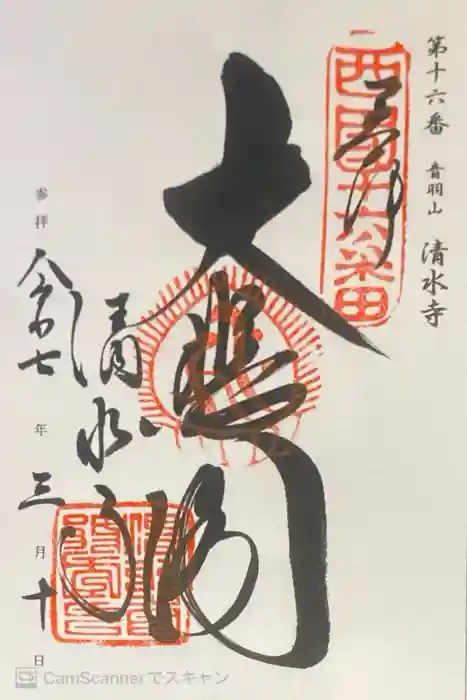 第十六番 音羽山 清水寺
奉拝
西國十六番
大悲閣
清水寺
参拝 令和七年三月十日
CamScannerでスキャン